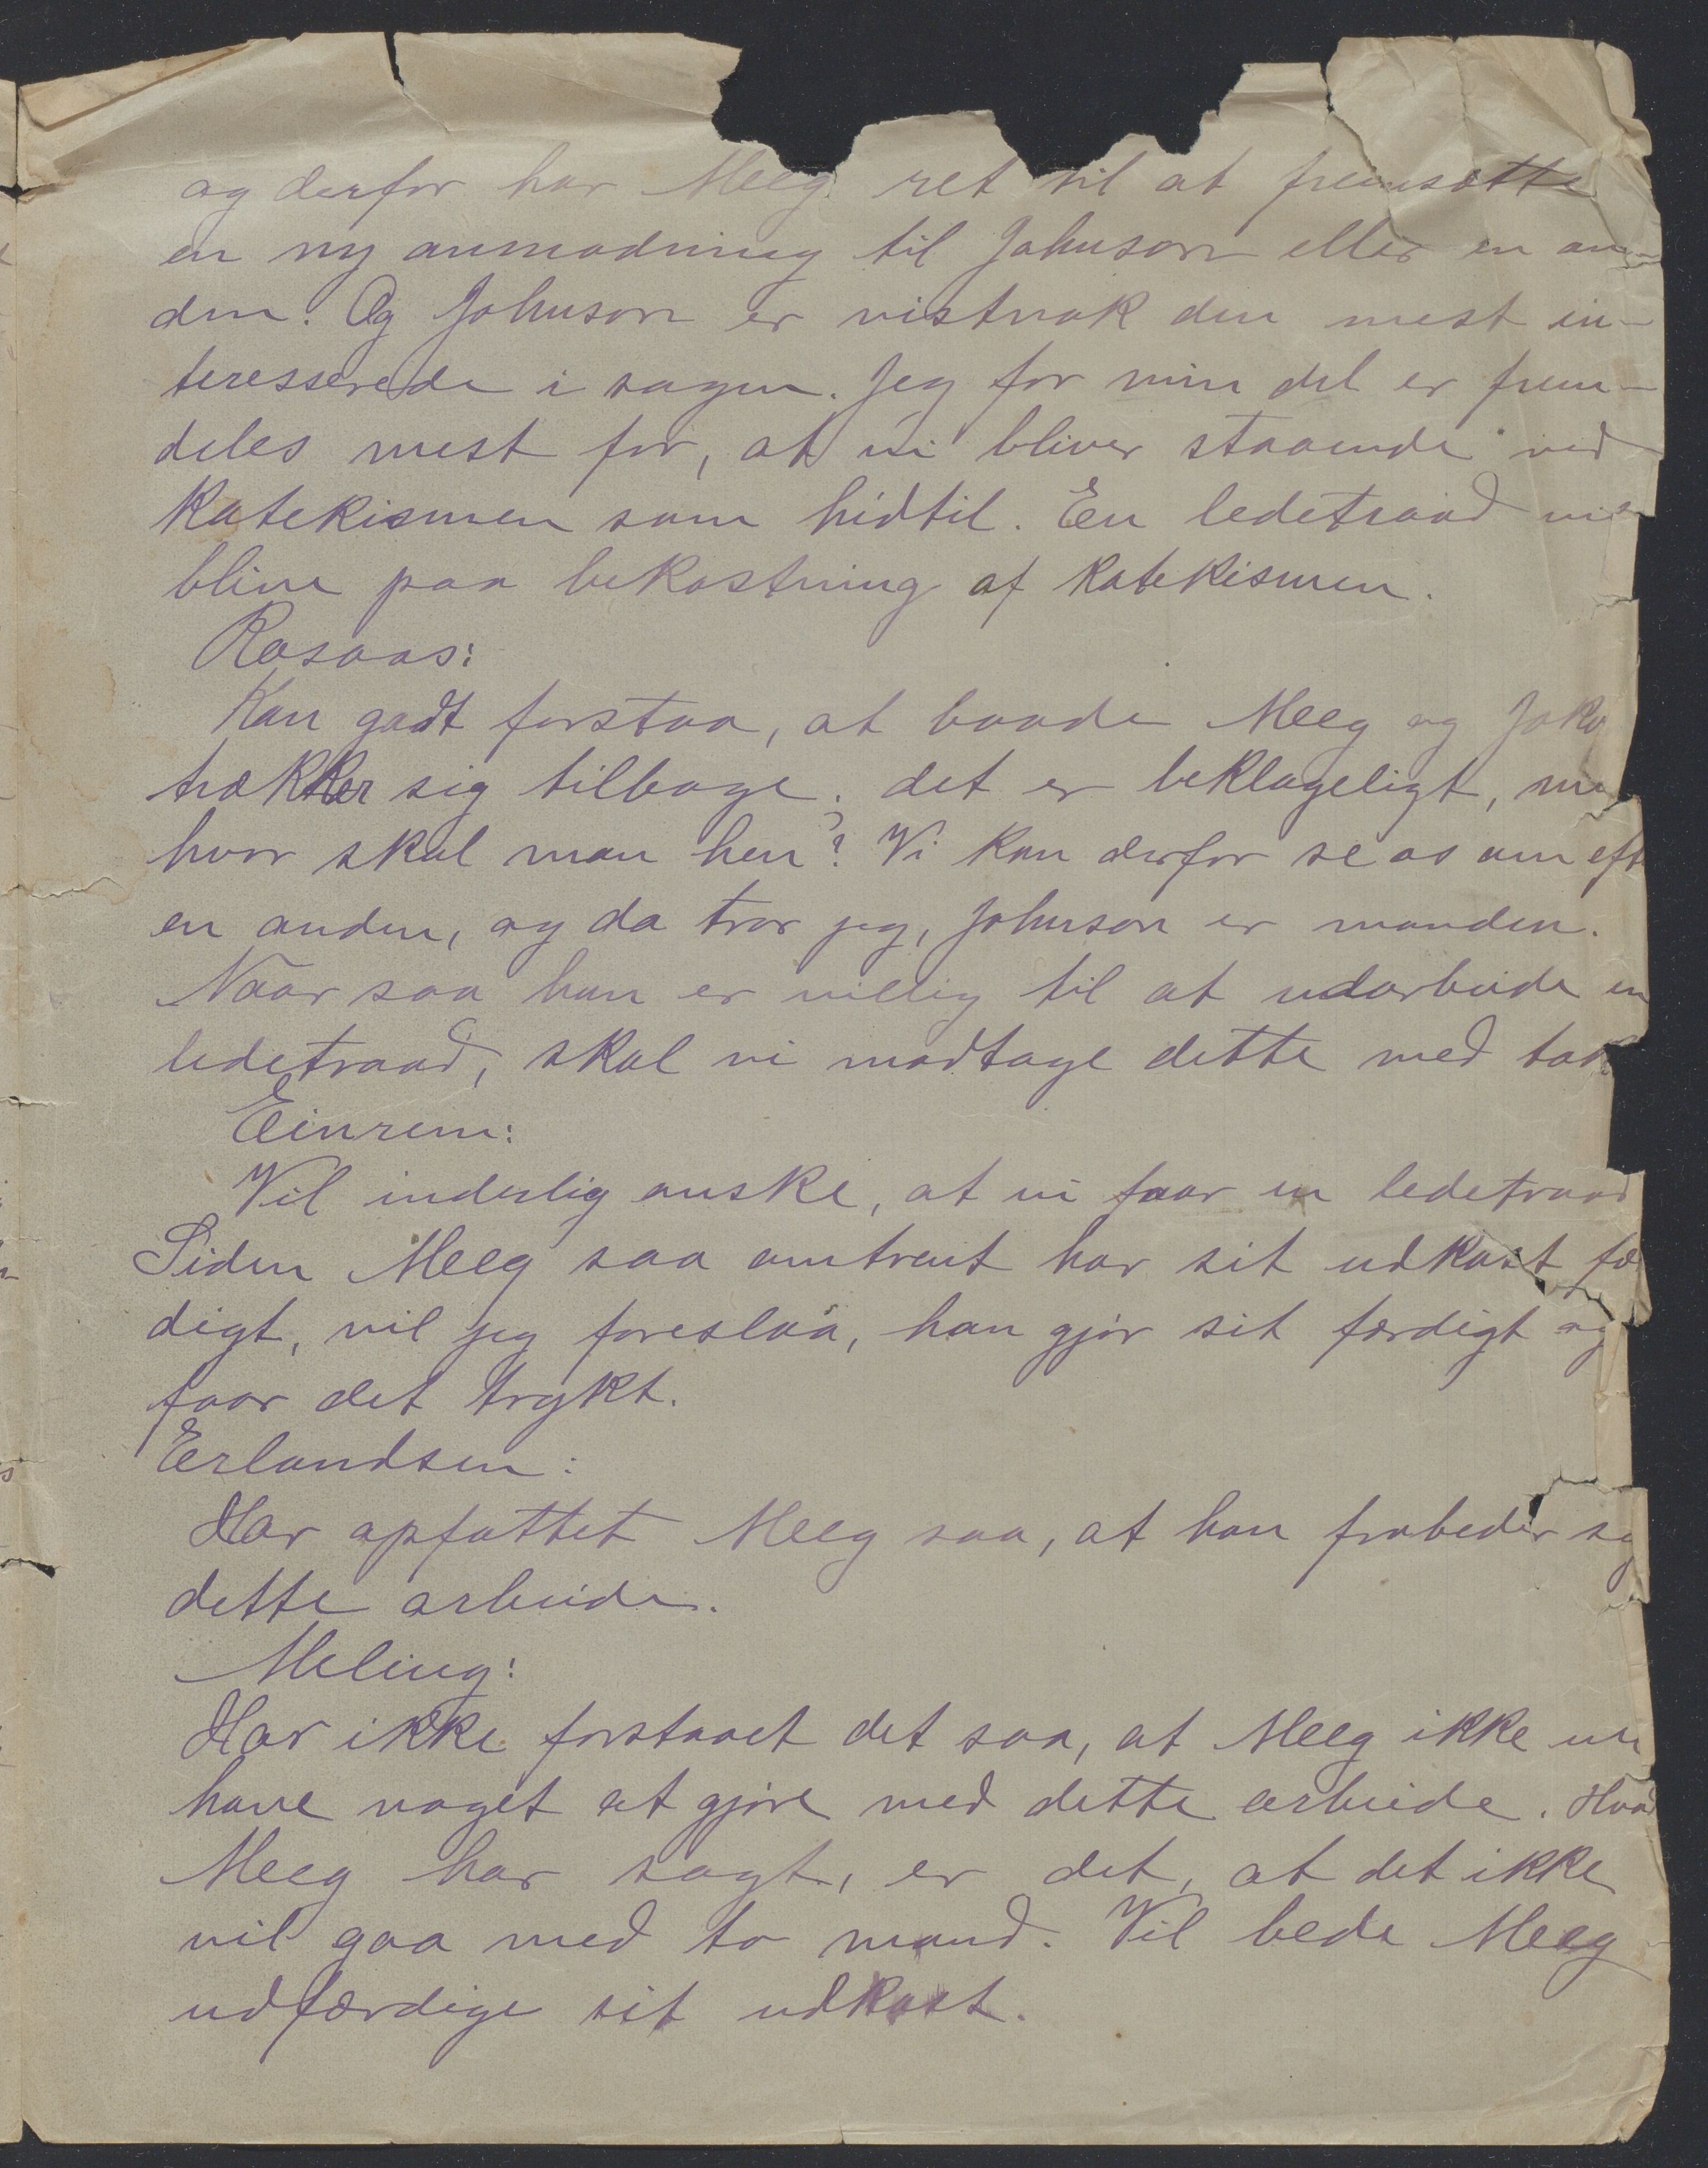 og derfor har Meeg ret til at fremsætte
en ny anmodning til Johnson eller en an-
den. Og Johnson er vistnok den mest in-
teresserede i sagen. Jeg for min del er frem-
deles mest for, at vi bliver staaende ved
Katekismen som hidtil. En ledetraad vil
blive paa bekostning af Katekismen.
Rosaas:
Kan godt forstaa, at baade Meeg og Jako
trækker sig tilbage; det er beklageligt, me
hvor skal man hen? Vi kan derfor se os om eft
en anden, og da tror jeg, Johnson er manden.
Naar saa han er villig til at udarbeide en
ledetraad, skal vi modtage dette med tak
Einrem:
Vil inderlig ønske, at vi faar en ledetraad
Siden Meeg saa omtrent har sit udkast fæ
digt, vil jeg foreslaa, han gjør sit færdigt og
faar det trykt.
Erlandsen:
Har opfattet Meeg saa, at han frabeder sig
dette arbeide.
Meling:
Har ikke forstaaet det saa, at Meeg ikke
have noget at gjøre med dette arbeide. Hvad
Meeg har sagt, er det, at det ikke
vil gaa med to mand. Vil bede Meeg
udfærdige sit udkast.